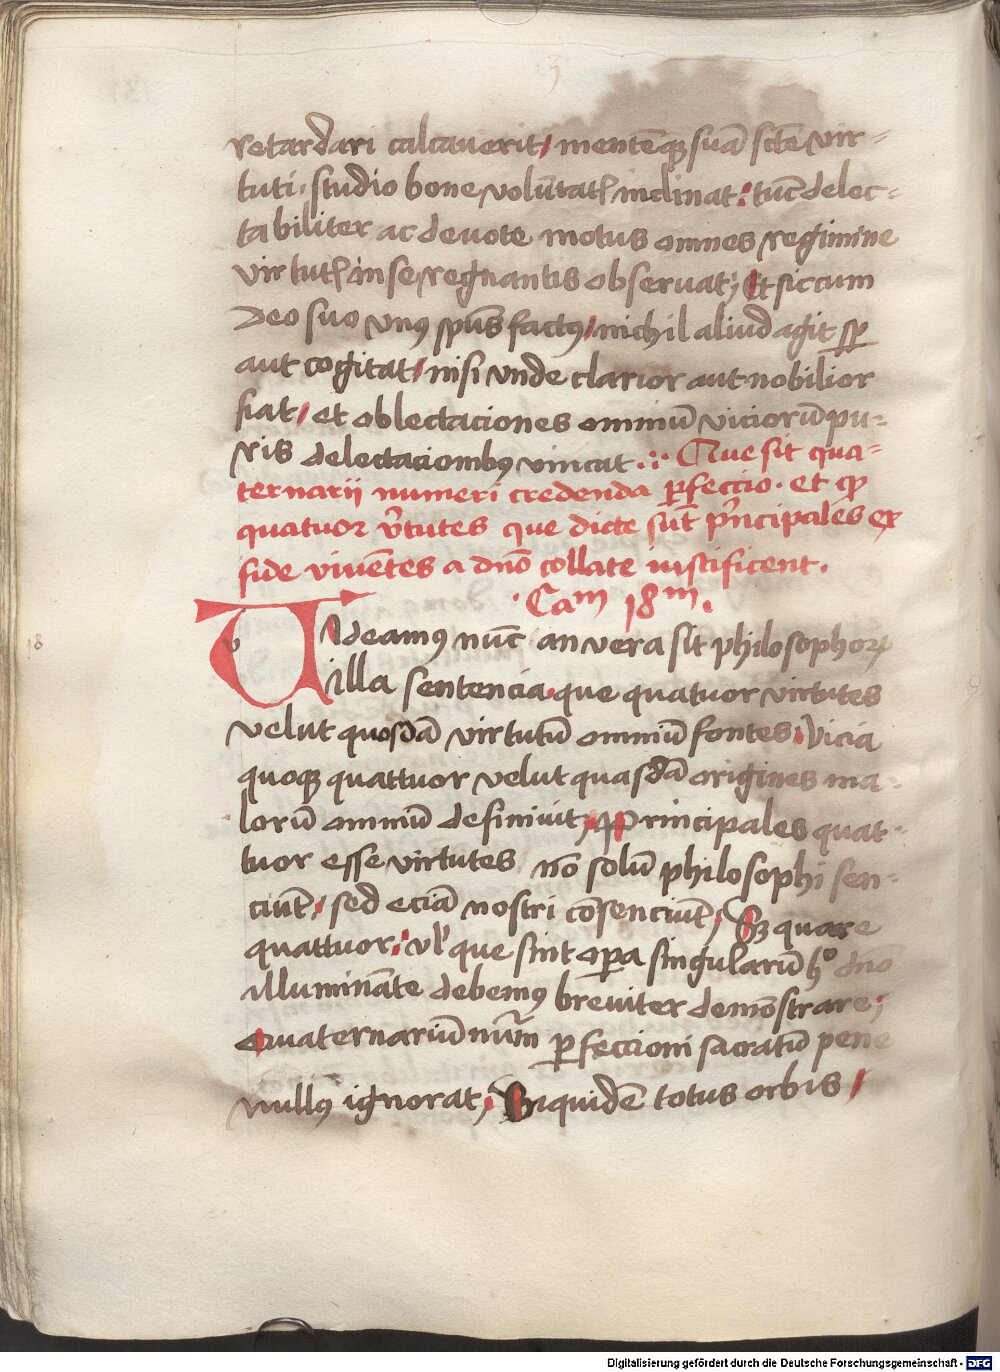 retardari calcauerit / mentēqꝫ suā scē vir-
tuti · studio bone volūtatꝭ inclinat : tūc delec-
tabiliter ac deuote motus omnes regimine
virtutꝭ in se regnantis obseruat ; Et sic cum
deo suo vnꝰ sp̄us factꝰ / nichil aliud agit
aut cogitat / nisi vnde clarior aut nobilior
fiat / et oblectaciones omniū viciorū pu-
ris delectacionibꝰ vincat . : Que sit qua-
ternarij numeri credenda ꝑfeccio · et qꝫ
quatuor v̓tutes que dicte sūt p̓ncipales ex
fide viuētes a dn̄o collate iustificent .
· Cam 18m .
v
18
VIdeamꝰ nūc an vera sit philosophoꝝ
illa sentencia · que quatuor virtutes
velut quosdā virtutū omniū fontes : Vicia
quoqꝫ quattuor velut quasdā origines ma-
lorū omniū definiuit ; Principales quat-
tuor esse virtutes nō solū philosophi sen-
ciūt / sed eciā nostri cōsenciūt ; Sꝫ quare
quattuor : vl̓ que sint oꝑa singularū hͦ dn̄o
illumināte debemꝰ breuiter demōstrare ;
Quaternariū nūm ꝑfeccioni sacratū pene
nullꝰ ignorat ; Siquidē totus orbis /
Digitalisierung gefördert durch die Deutsche Forschungsgemeinschaft - DFG